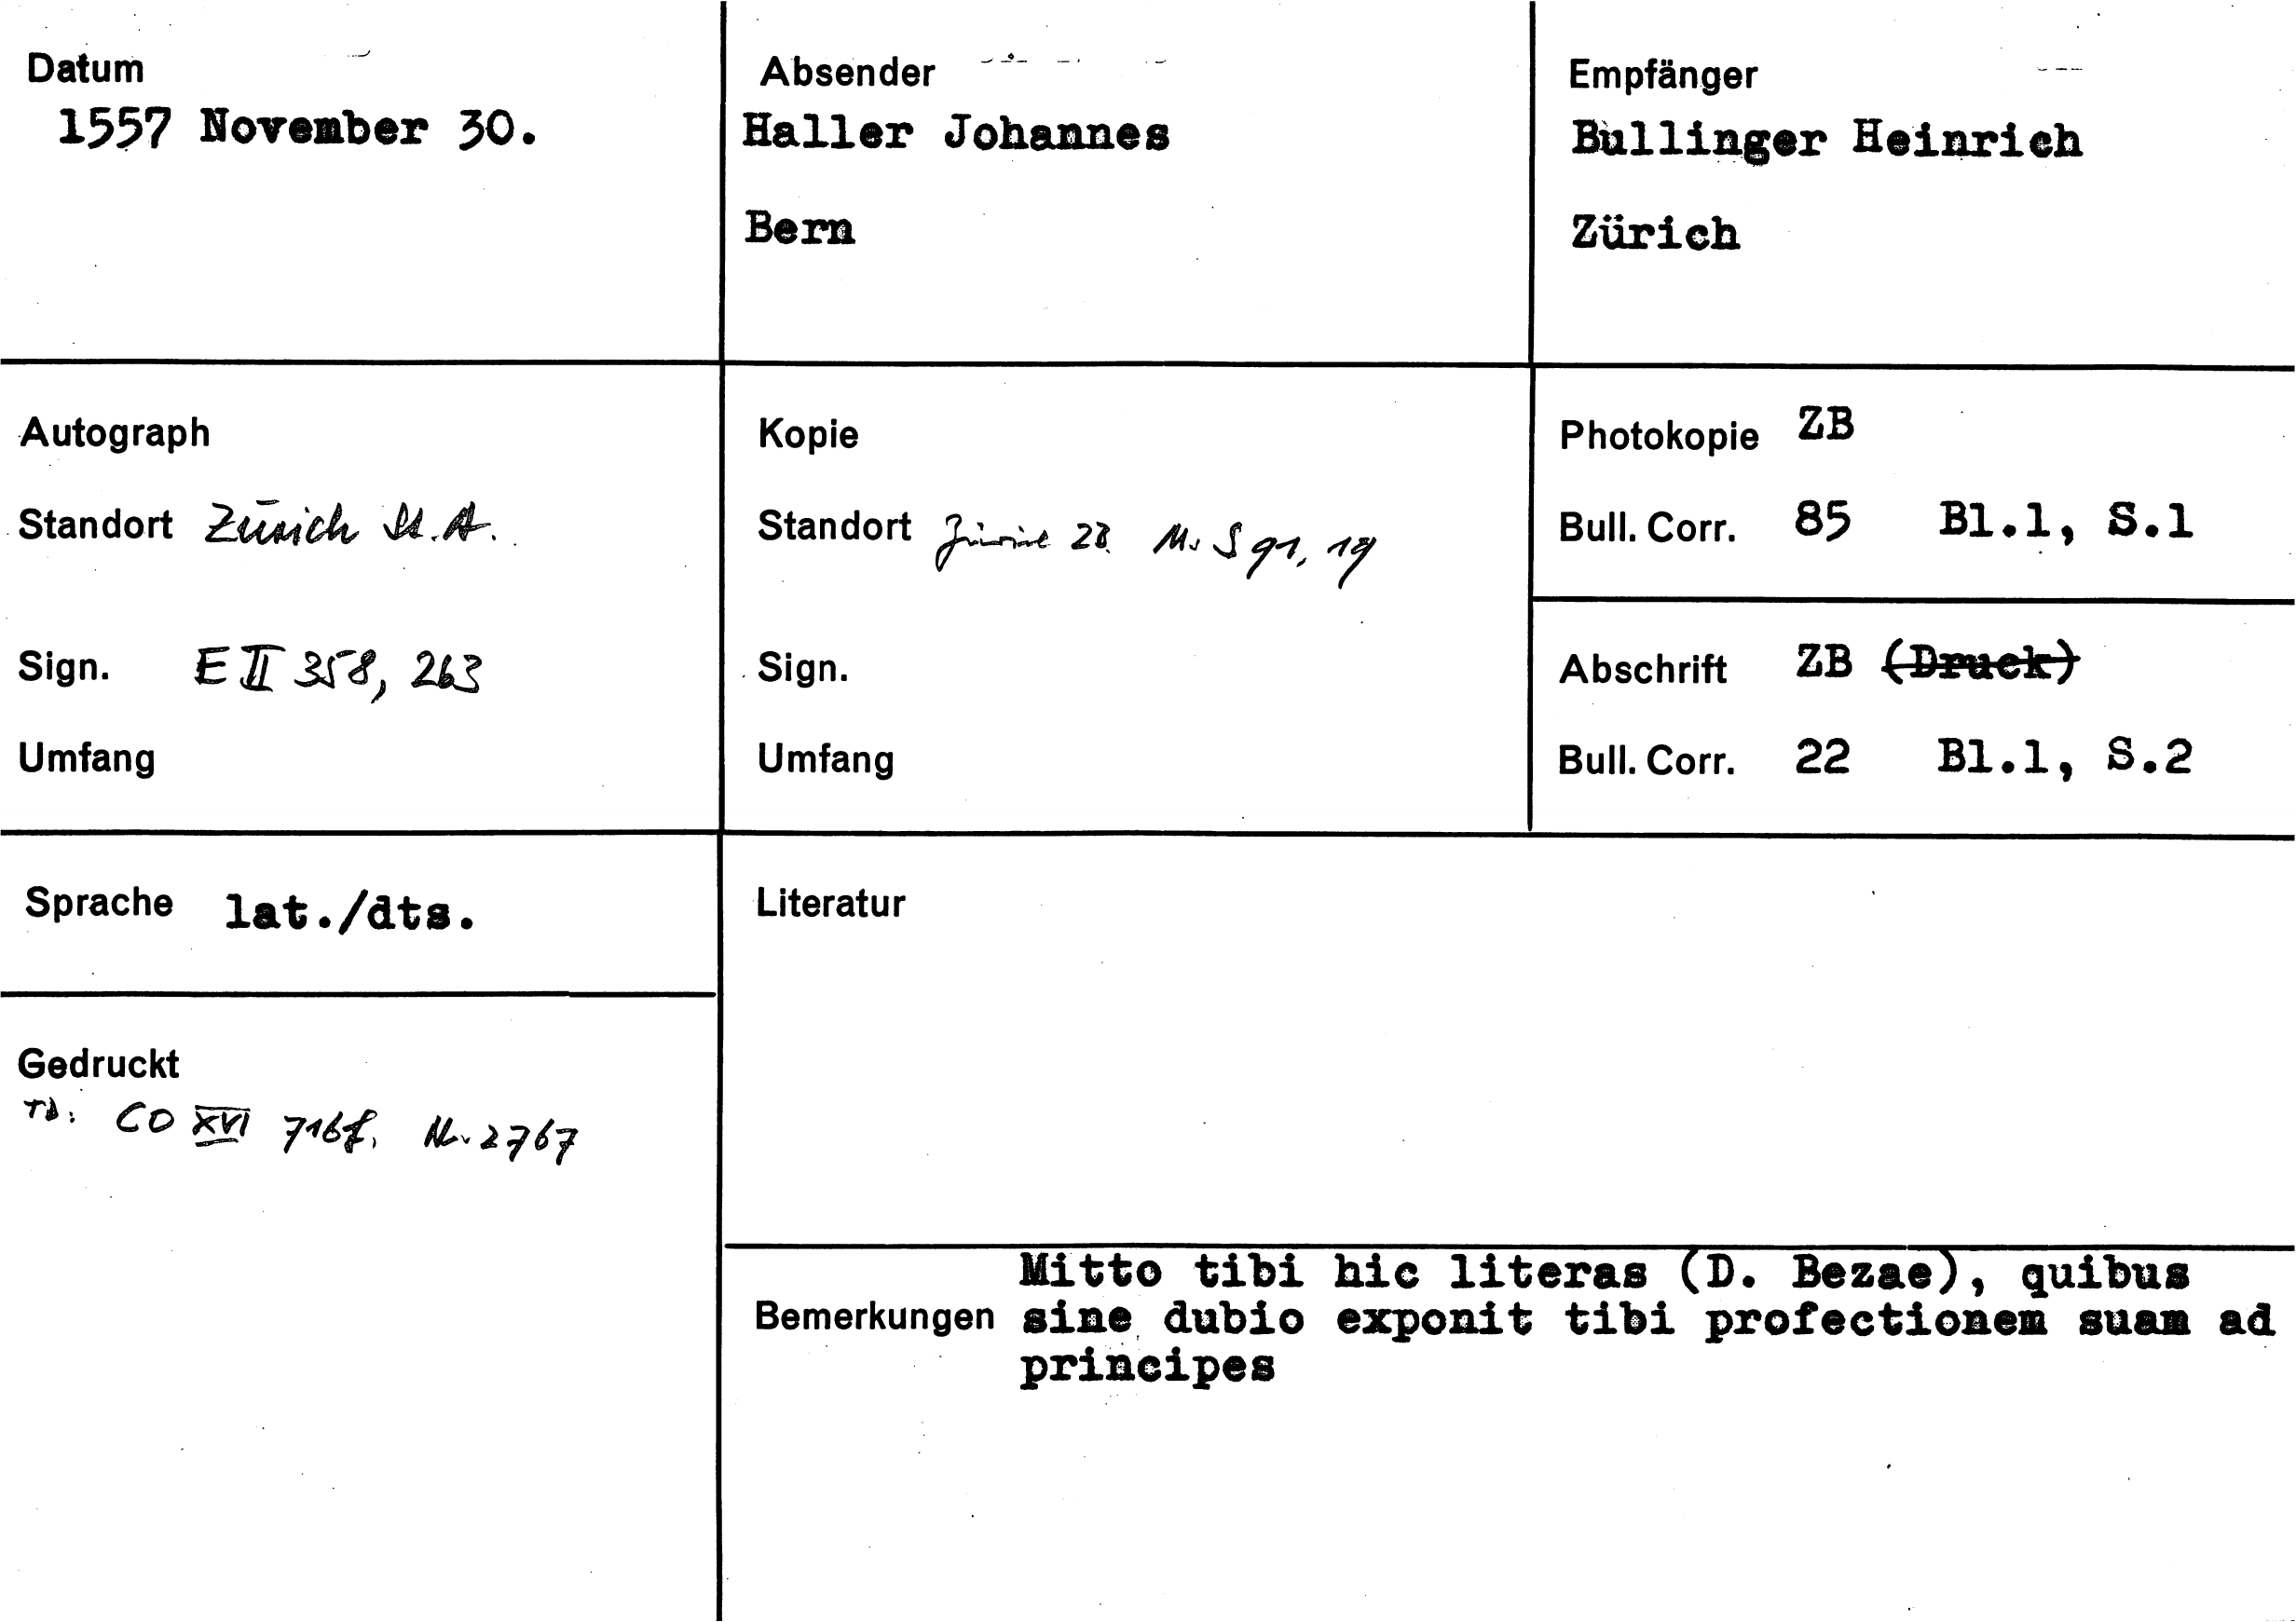 Datum
1557 November 30.
Absender
Haller Johannes
Bern
Empfänger
Bullinger Heinrich
Zürich
Autograph
Standort Zürich St.A.
Sign. E II 358, 263
Umfang
Kopie
Standort Zürich ZB Ms S 91, 19
Sign.
Umfang
Photokopie ZB
Bull. Corr. 85 Bl.1, S.1
Abschrift ZB (Druck)
Bull. Corr. 22 Bl.1, S.2
Sprache lat./dts.
Gedruckt
TD: CO XVI 716f. Nr. 2767
Literatur
Bemerkungen
Mitto tibi hic literas (D. Bezae), quibus
sine dubio exponit tibi profectionem suam ad
principes